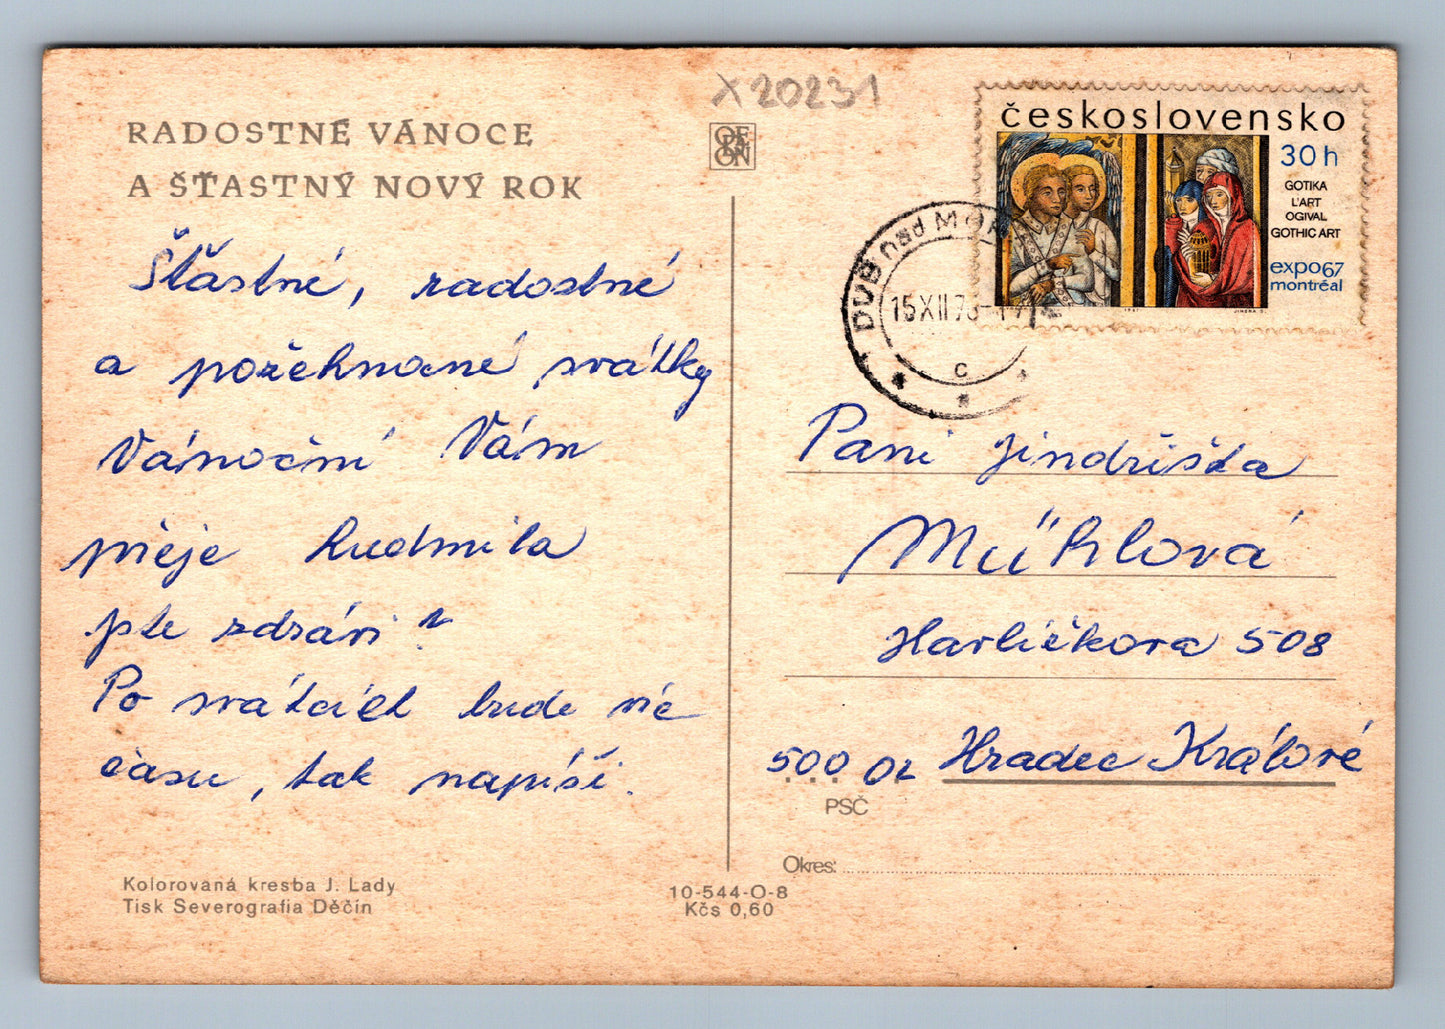 X 20231
RADOSTNÉ VÁNOCE
A ŠŤASTNÝ NOVÝ ROK
Šťastné, radostné
a požehnané svátky
Vánoční Vám
přeje Ludmila
jste zdrávi?
Po svátcích bude víc
času, tak napíši.
Kolorovaná kresba J. Lady
Tisk Severografia Děčín
10-544-O-8
Kčs 0,60
ORBIS
československo
30 h
GOTIKA
L'ART
OGIVAL
GOTHIC ART
expo67
montréal
DUB nad MOR
15 XII 73
c
Paní Jindřiška
Mühlová
Havlíčkova 508
500 02 Hradec Králové
PSČ
Okres: